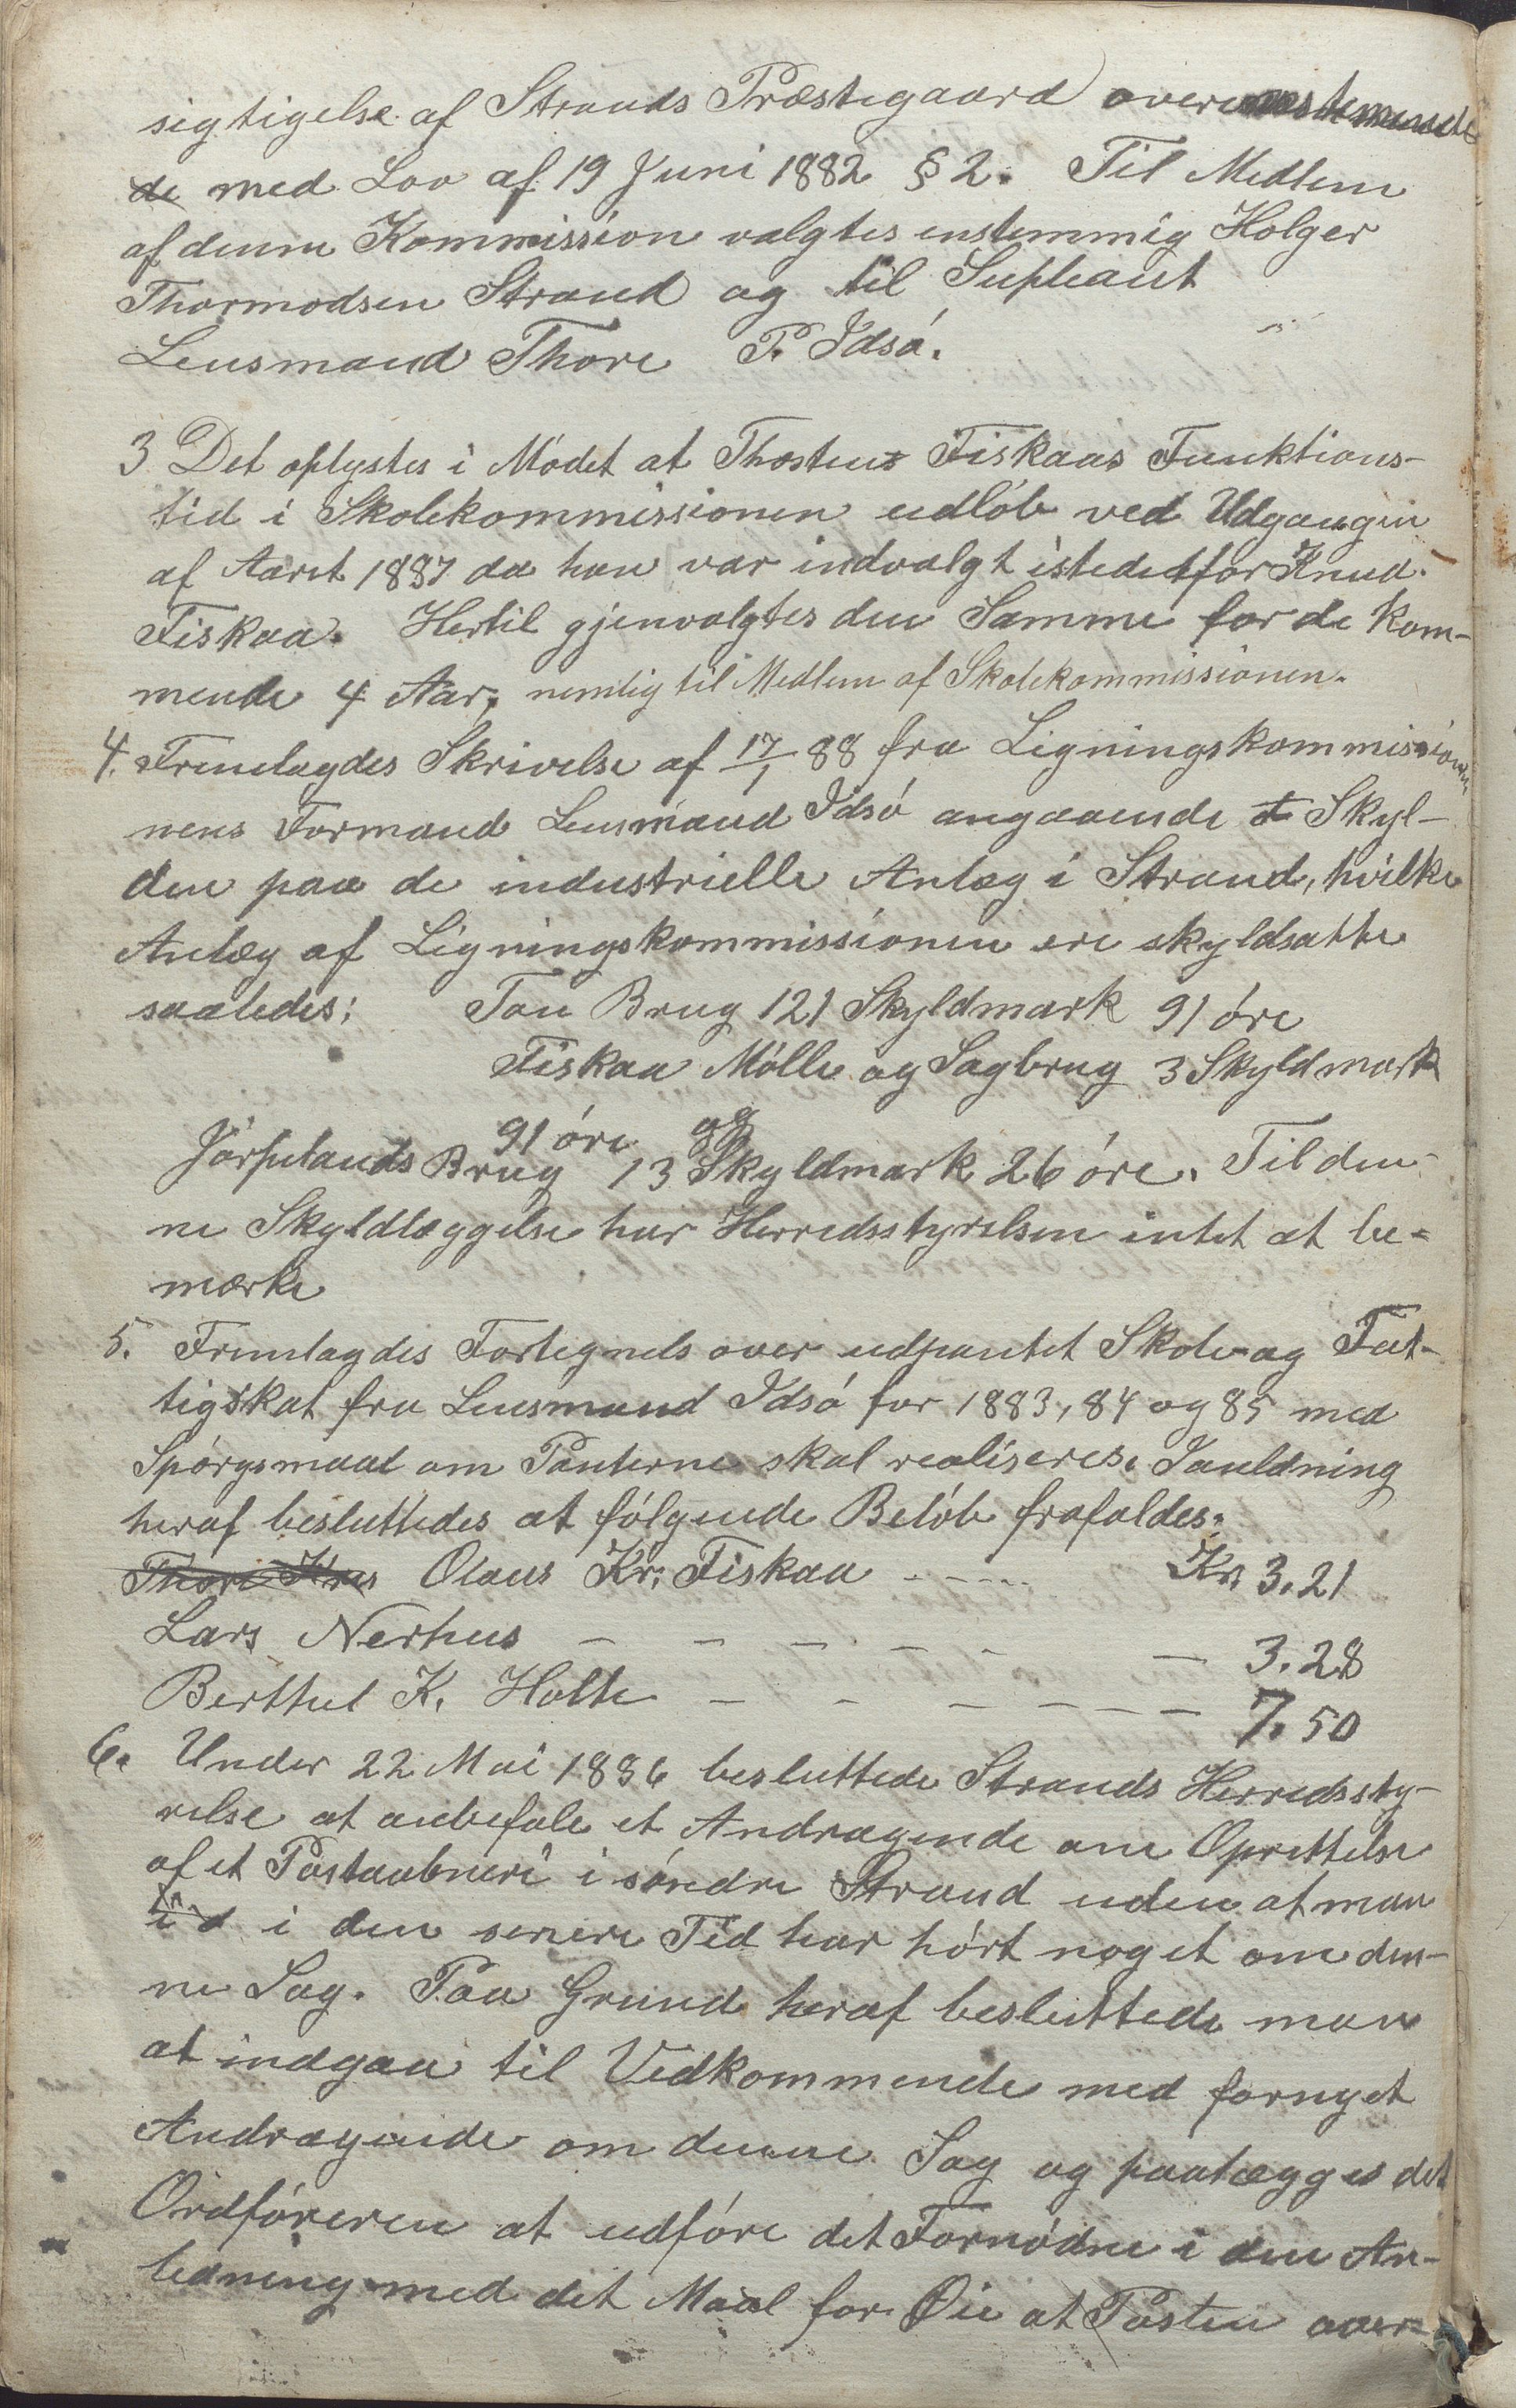 sigtigelse af Strands Præstegaard overensstemmende
de med Lov af 19 Juni 1882 § 2. Til Medlem
af denne Kommission valgtes enstemmig Holger
Thormodsen Strand og til Supleant
Lensmand Thore P. Idsø.
3 Det oplystes i Mødet at Thostens Fiskaas Funktions-
tid i Skolekommissionen udløb ved Udgangen
af Aaret 1887 da han var indvalgt istedetfor Knud
Fiskaa. Hertil gjenvalgtes den Samme for de kom-
mende 4 Aar, nemlig til Medlem af Skolekommissionen.
4. Fremlagdes Skrivelse af 17/1 88 fra Ligningskommissionen
nens Formand Lensmand Idsø angaaende Skyl-
den paa de industrielle Anlæg i Strand, hvilke
Anlæg af Ligningskommissionen ere skyldsatte
saaledes: Tau Brug 121 Skyldmark 91 øre
Fiskaa Mølle og Sagbrug 3 Skyldmark
91 øre og
Jørpelands Brug 13 Skyldmark 26 øre. Til den-
ne Skyldlæggelse har Herredsstyrelsen intet at be-
mærke
5. Fremlagdes Fortegnels over udpantet Skole og Fat-
tigskat fra Lensmand Idsø for 1883, 84 og 85 med
Spørgsmaal om Panterne skal realiseres. I anldning
heraf besluttedes at følgende Beløb frafaldes:
Thore Kns Olaus Kr. Fiskaa ----- Kr. 3.21
Lars Nerhus - - - - - — 3.28
Berthel K. Holte - - - - - — 7.50
6. Under 22 Mai 1886 besluttede Strands Herredssty-
relse at anbefale et Andragende om Oprettelse
af et Postaabneri i søndre Strand uden at man
i d i den senere Tid har hørt noget om den-
ne Sag. Paa Grund heraf besluttede man
at indgaa til Vedkommende med fornyet
Andragende om denne Sag og paalægges det
Ordføreren at udføre det Fornødne i den An-
ledning med det Maal for Øie at Posten over-